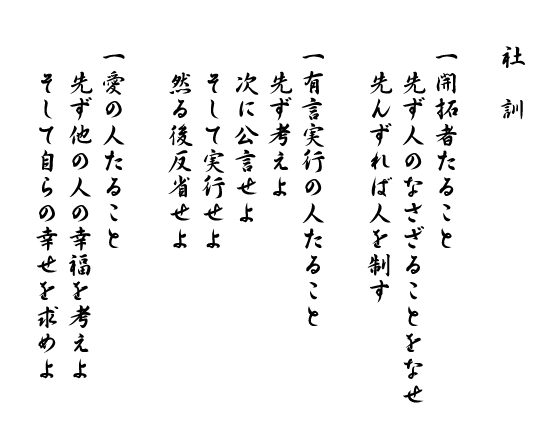 社訓
一開拓者たること
先ず人のなさざることをなせ
先んずれば人を制す
一有言実行の人たること
先ず考えよ
次に公言せよ
そして実行せよ
然る後反省せよ
一愛の人たること
先ず他の人の幸福を考えよ
そして自らの幸せを求めよ